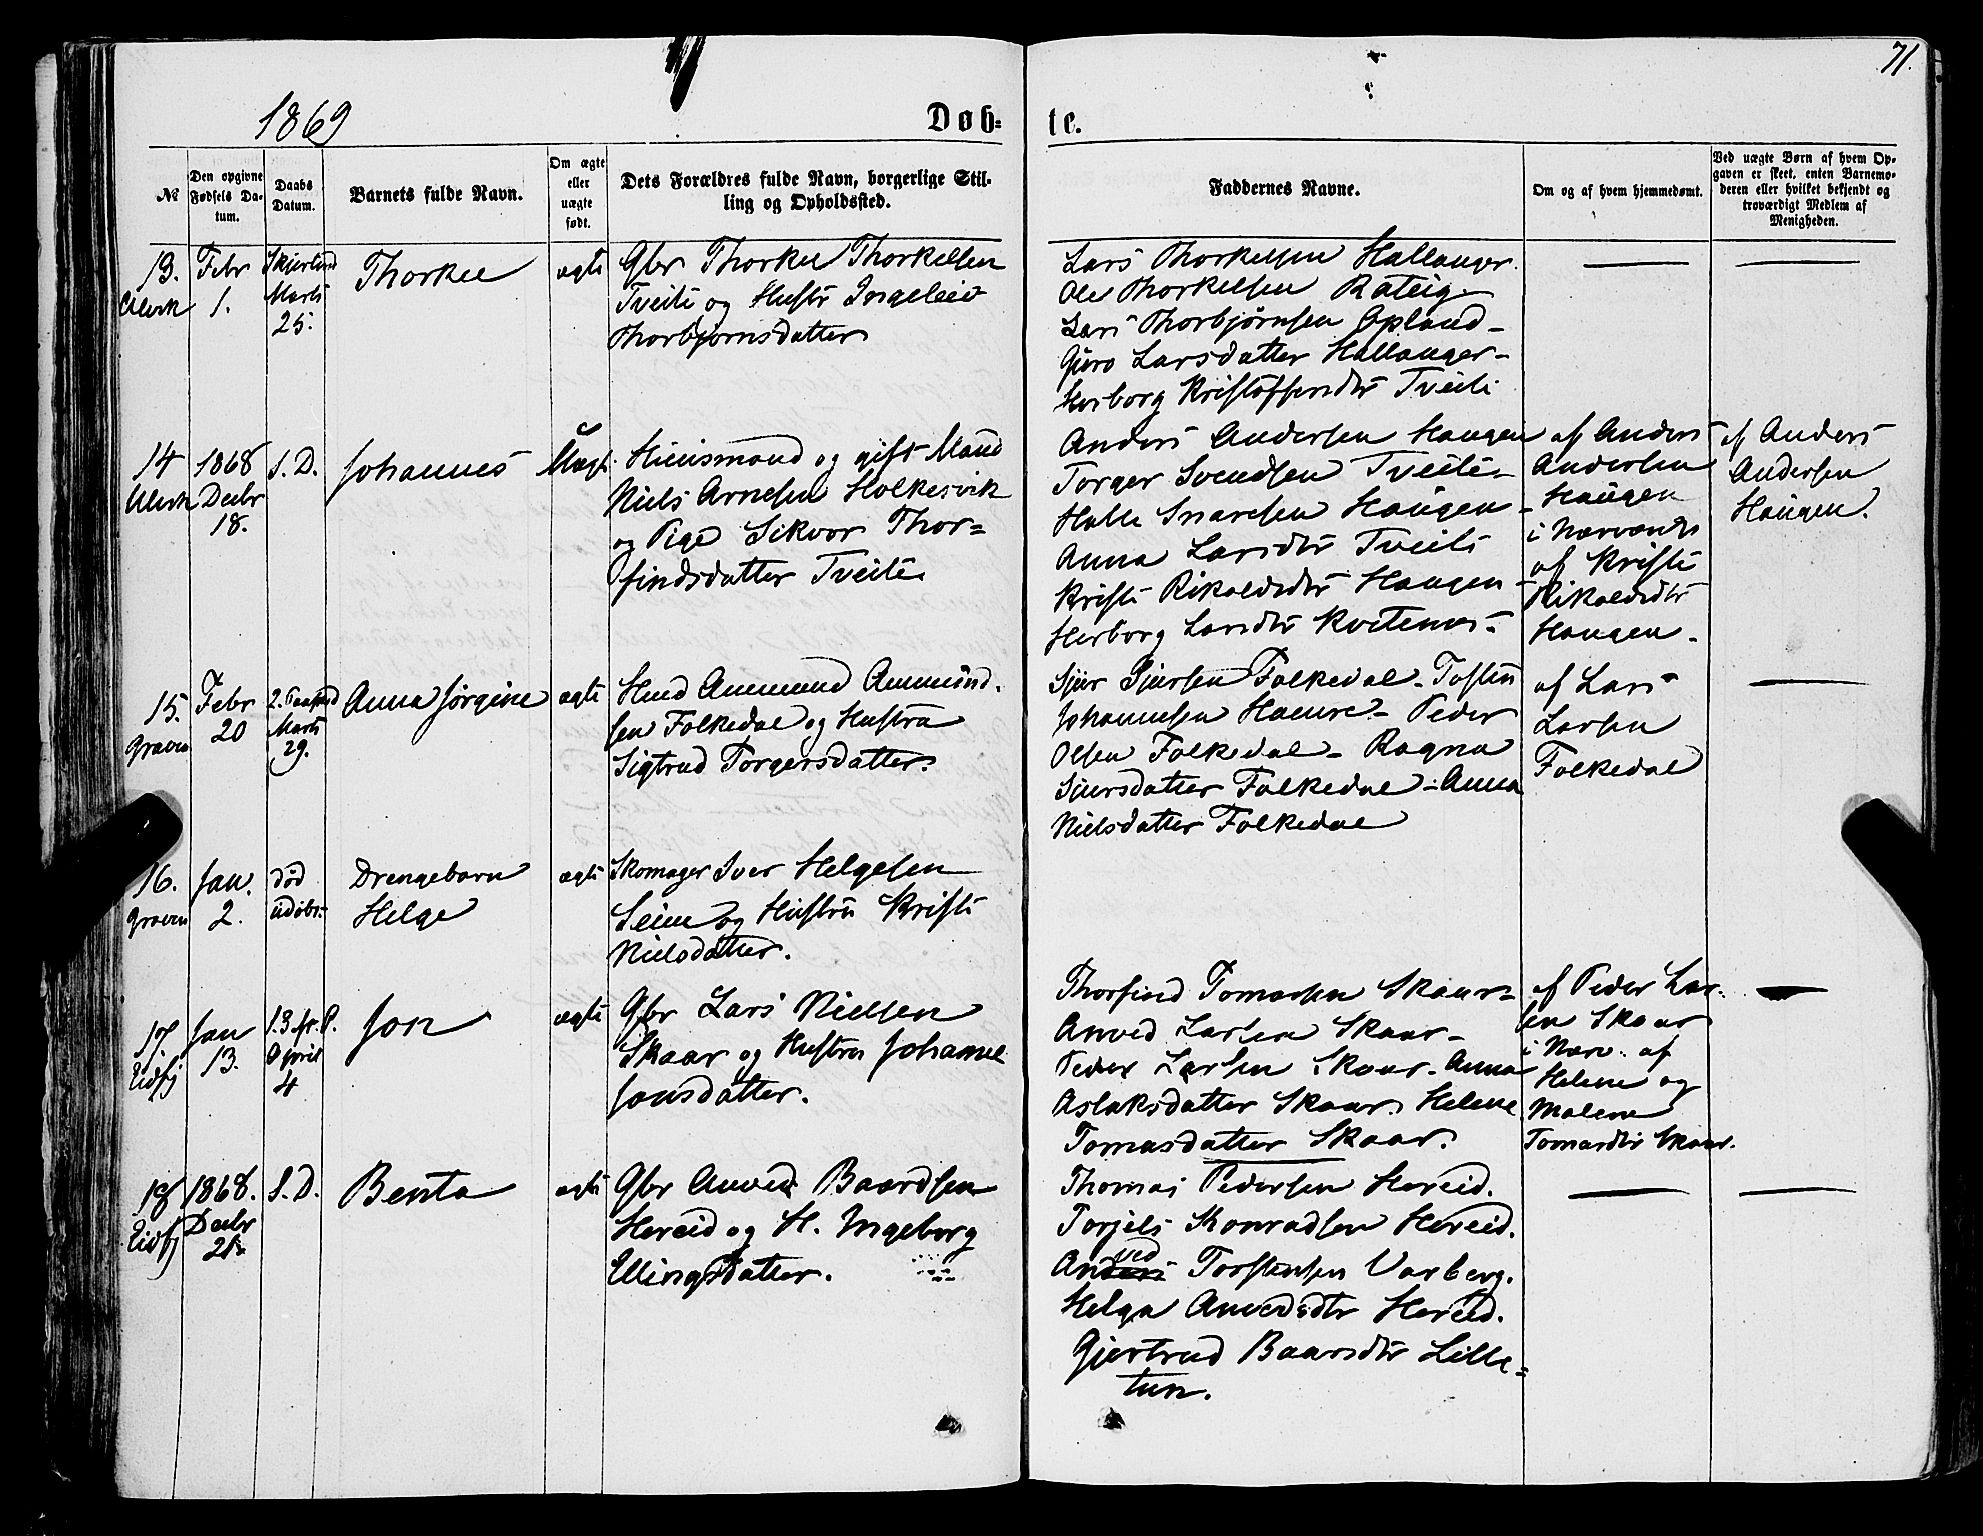 71.
1869
Døb-
te.
№
Den opgivne Fødsels Datum.
Daabs Datum.
Barnets fulde Navn.
Om ægte eller uægte født.
Dets Forældres fulde Navn, borgerlige Stilling og Opholdssted.
Faddernes Navne.
Om og af hvem hjemmedøbt.
Ved uægte Børn af hvem Opgaven er skeet, enten Barnemoderen eller hvilket bekjendt og troværdigt Medlem af Menigheden.
13.
Ulvik
Febr
1.
Marts
25.
Thorkel
ægte
Gbr Thorkel Thorkelsen
Tveite og Hustr Ingeleiv
Thorbjørnsdatter
Lars Thorkelsen Hallanger.
Ole Thorkelsen Rateig.
Lars Thorbjørnsen Opland-
Guro Larsdatter Hallanger-
Herborg Kristoffersdtr Tveite
14
Ulvik
1868
Decbr
18.
S. D.
Johannes
Uægt.
og gift Mand
Niels Arnesen Holkesvik
og Pige Sikvor Thor=
findsdatter Tveite
Anders Andersen Haugen
Torger Svendsen Tveite-
Halle Snaresen Haugen-
Anna Larsdtr Tveite
Kristi Rikoldsdtr Haugen-
Herborg Larsdtr Kvitenes-
af Anders
Andersen
Haugen
i Nærværds
af Kristi
Rikoldsdtr
Haugen.
af Anders
Andersen
Haugen.
15.
Graven
Febr
20
2. Paaskd
Marts
29.
Anna Jørgine
ægte
Hmd Ammund Ammund.
sen Folkedal og Hustru
Sigtrud Torgersdatter.
Sjur Sjursen Folkedal- Tosten
Johannesen Haeure- Peder
Olsen Folkedal- Ragna
Sjursdatter Folkedal-Anna
Nielsdatter Folkedal
af Lars
Larsen
Folkedal
16.
Graven
Jan.
2.
død
udøbt
Drengebarn
Helge
ægte
Skomager Iver Helgesen
Seim og Hustru Kristi
Nielsdatter.
17.
Eidfj
Jan
13.
April
4
Jon
ægte
Gbr Lars Nielsen
Skaar og Hustru Johanne
Jonsdatter.
Thorfind Tomassen Skaar-
Anved Larsen Skaar-
Peder Larsen Skaar- Anna
Aslaksdatter Skaar. Helene
Tomasdatter Skaar.
af Peder Lar-
sen Skaar
i Nærv. af
Helene og
Malene
Tomasdtr Skaar.
18
Eidfj
1868.
Decbr
21.
S. D.
Benta
ægte
Gbr Anved Baardsen
Hereid og H. Ingeborg
Ellingsdatter.
Thomas Pedersen Hereid.
Torjels Konradsen Hereid.
Anved Torstensen Varberg.
Helga Anvedsdtr Hereid.
Gjertrud Baarsdtr Lille=
tun.